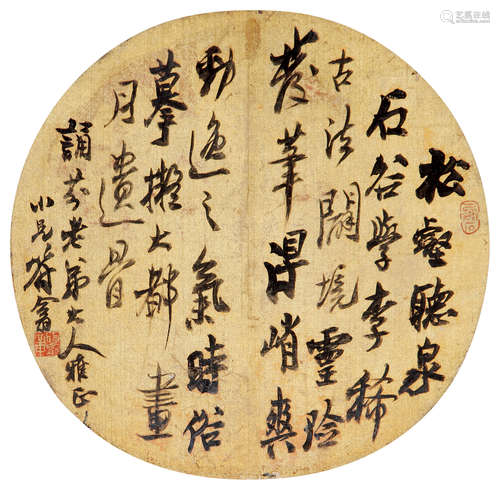 松壑聽泉
石谷學李稀
古法闢境靈險
養筆淂峭與
勁逸之氣時俗
摹擬大都畫
月遺骨
誦芬老弟大人雅正
小兄符翕